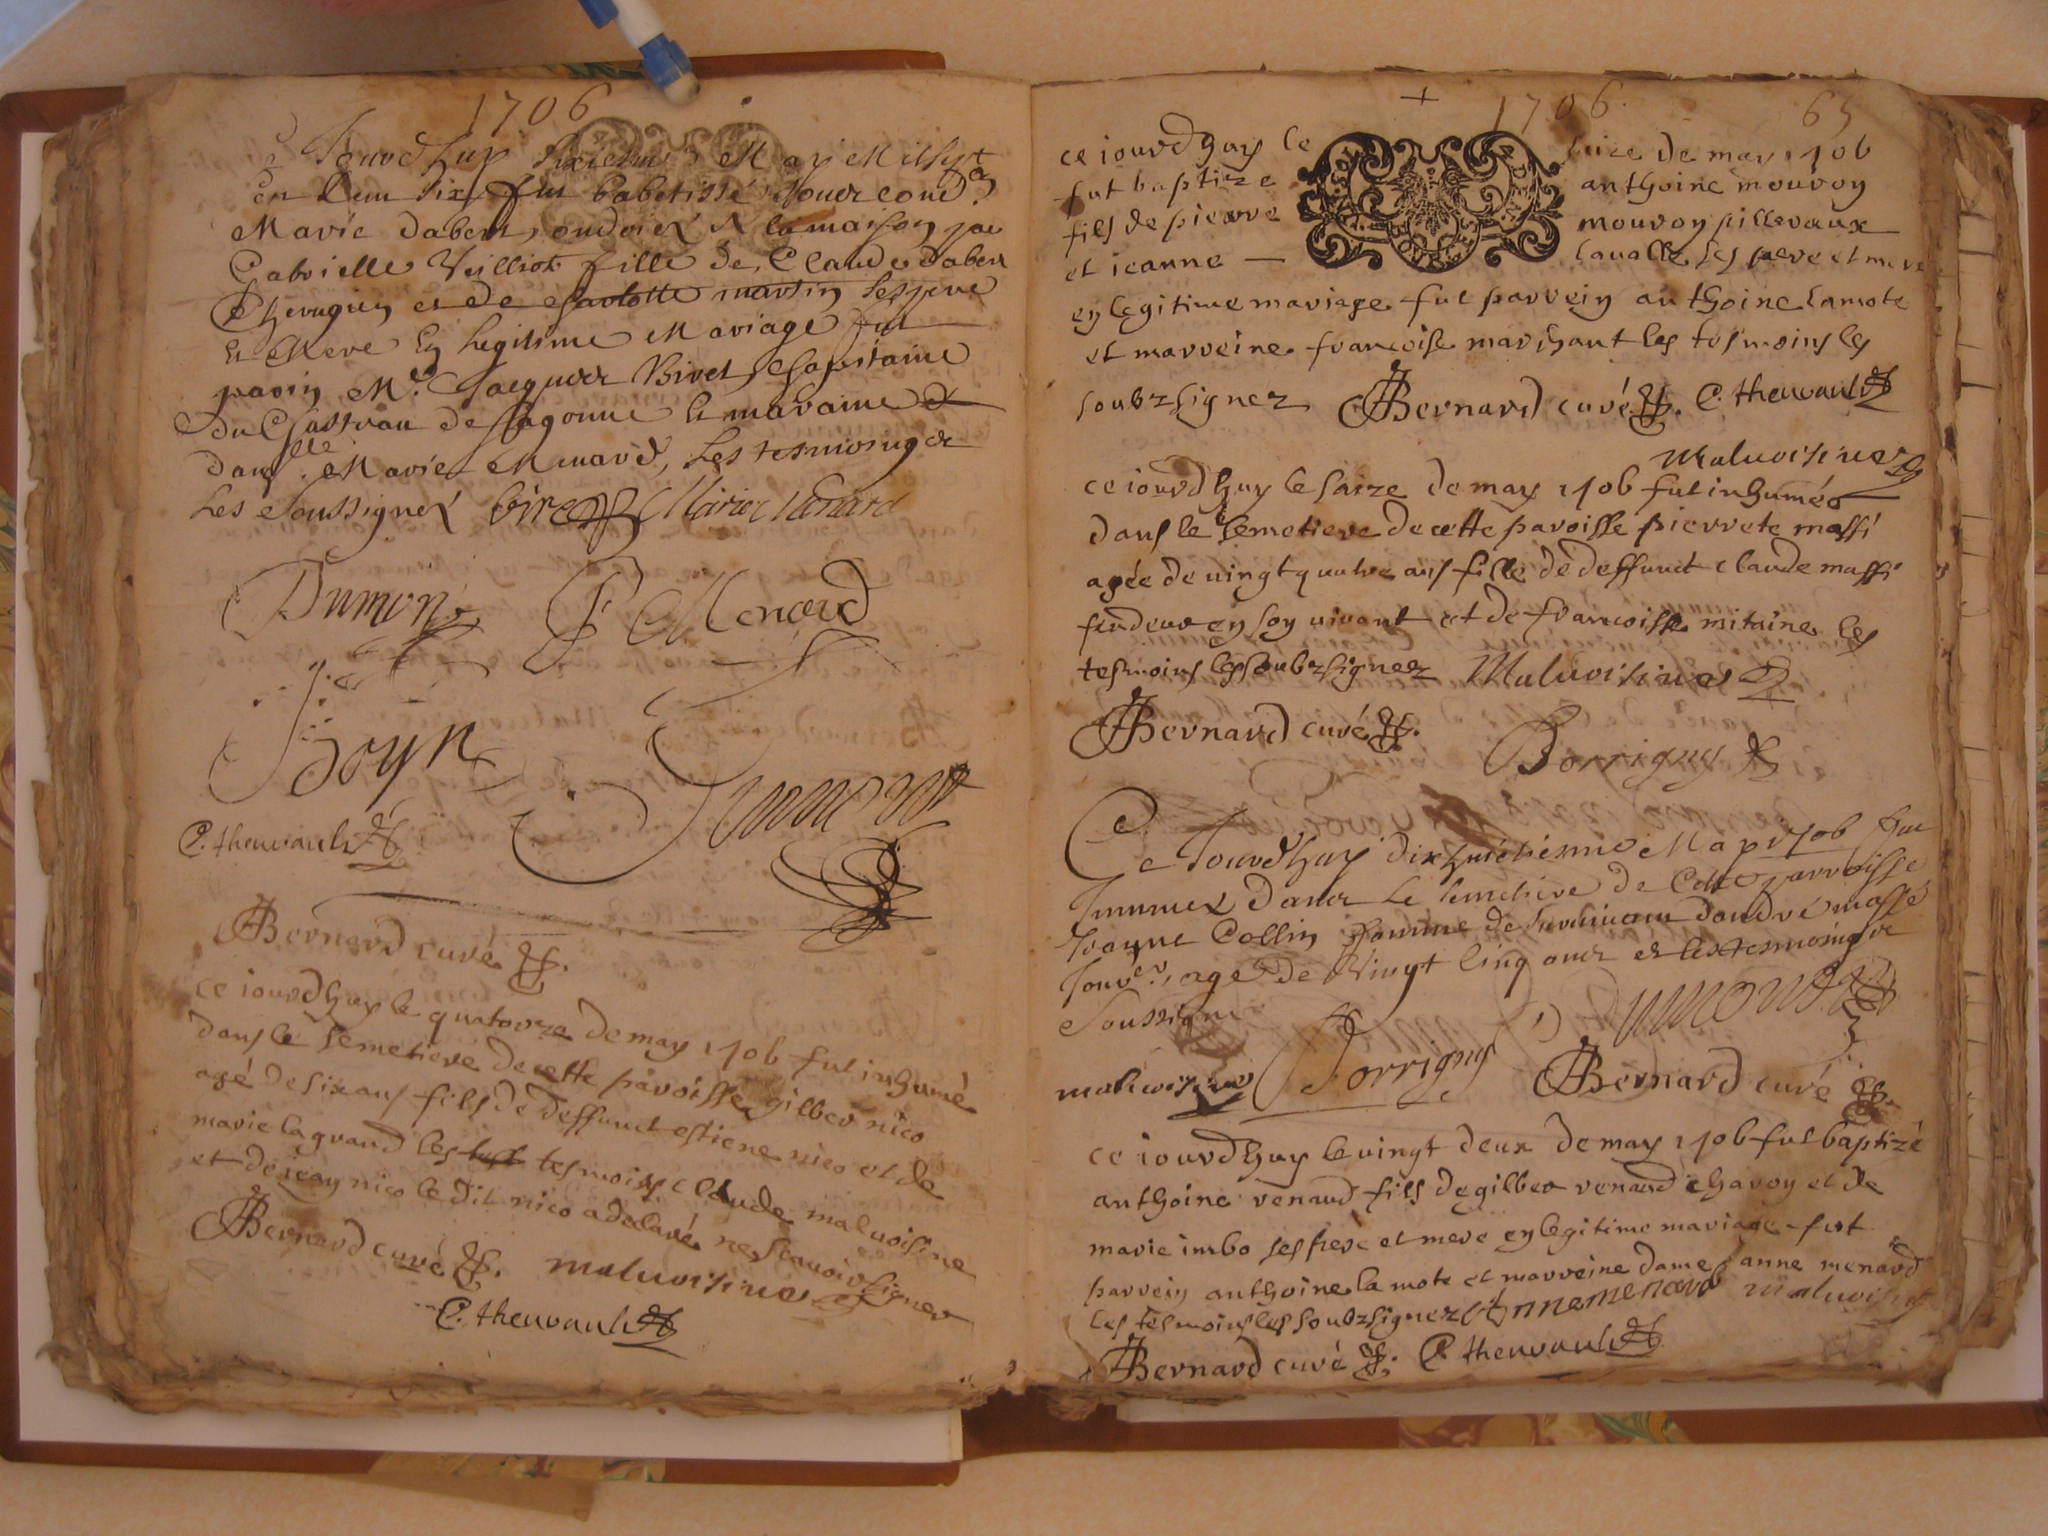 1706
Jourdhuy sixiesme May Mil sept
cen
Marie dabert, ondoiéé A la maison par
Gabrielle Veilliot fille de, Claude dabert
Chirugien et de Charlotte martin ses pere
Et Mere En legitime Mariage fut
parin Mr. Jacques Biret Capitaine
du Chasteau de sagonne et maraine
damlle. Marie Menard, Les tesmoings
Les Soussignez Biret Marie Menard
Dumont Menard
Boyn
C. theurault
Bernard curé
ce iourdhuy le quatorze de may 1706 fut inhumé
dans le semetiere de cette paroisse gilber nico
agé de six ans fils de deffunct estiene nico et de
marie lagrand les tesmoins claude maluoisine
et de iean nico le dit nico a declaré ne scauoir signer
Bernard curé maluoisine
C. theurault
+
1706 65
ce iourdhuy le saize de may 1706
fut baptize anthoine mouroy
fils de pierre mouroy pilleraux
et ieanne — lauallé ses pere et mere
en legitime mariage fut parrein anthoine lamote
et marreine francoise marchant les tesmoins les
soubzsignez Bernard curé C. theurault
Maluoisine
ce iourdhuy le saize de may 1706 fut inhumée
dans le semetiere de cette paroisse pierrete massi
agée de uingt quatre ans fille de deffunct claude massi
fendeur en son uiuant et de francoisse mitaine les
tesmoins les soubzsignez Maluoisine
Bernard curé Borrigny
Ce Jourdhuy dixhuictiesme May 1706 fut
Innumez dans le semetiere de Cette parroisse
Jeanne Collin famme de suruiuant dandré massé
agé de Vingt Cinq ans et les tesmoings
Soussigné
maluoisine Borrigny Bernard curé
ce iourdhuy le uingt deux de may 1706 fut baptizé
anthoine renaud fils de gilber renaud charon et de
marie imbo ses pere et mere en legitime mariage fut
parrein anthoine la mote et marreine dame anne menard
les tesmoins les soubzsignez Anne menard maluoisine
Bernard curé C. theurault